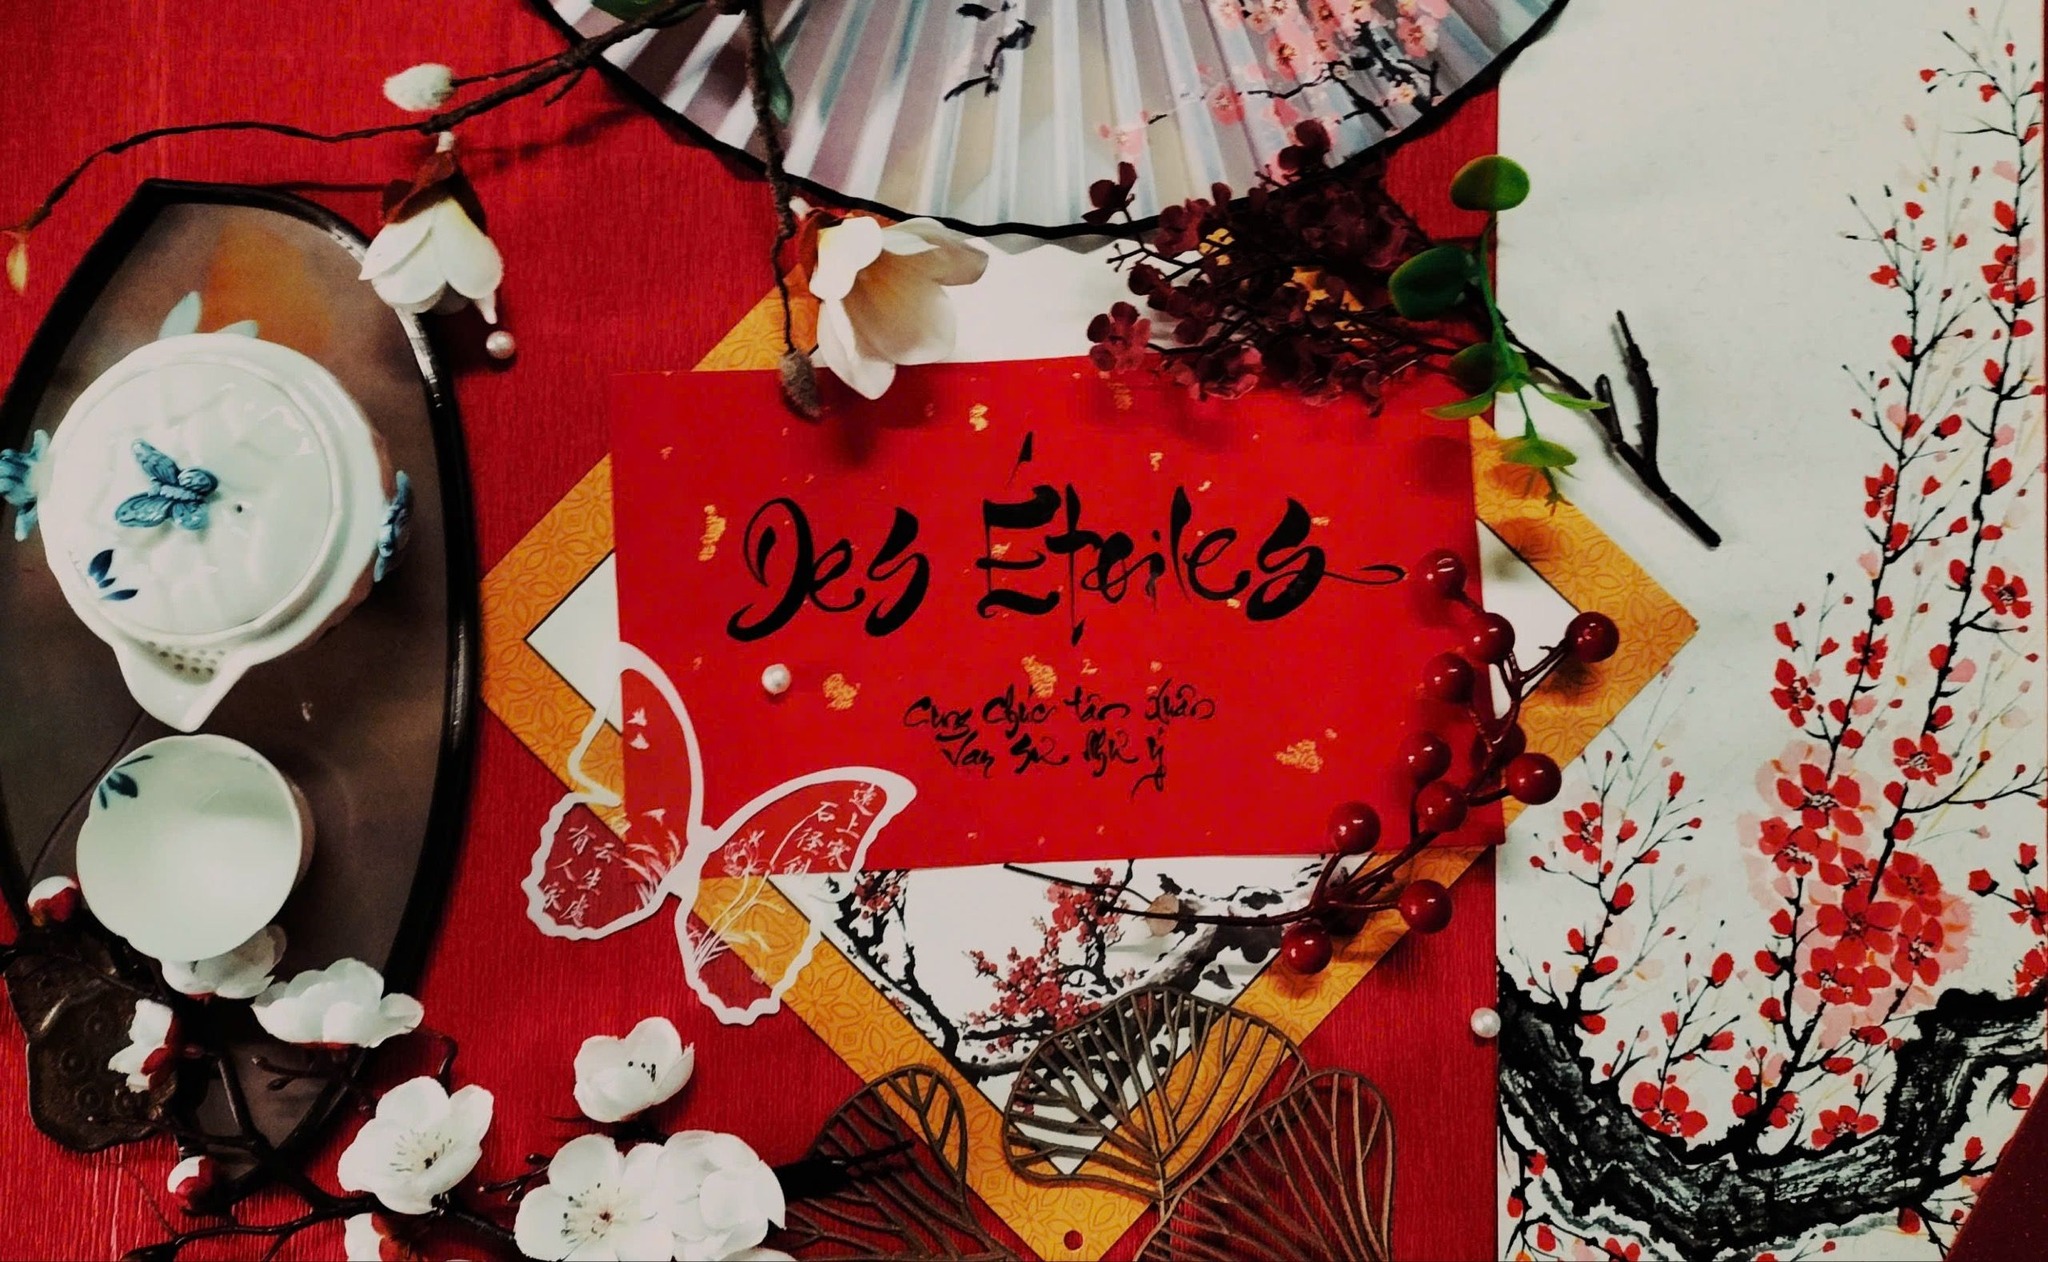 Des Étoiles
Cung chúc tân xuân
Vạn sự như ý
遠上寒
石径斜
有云生處
人家